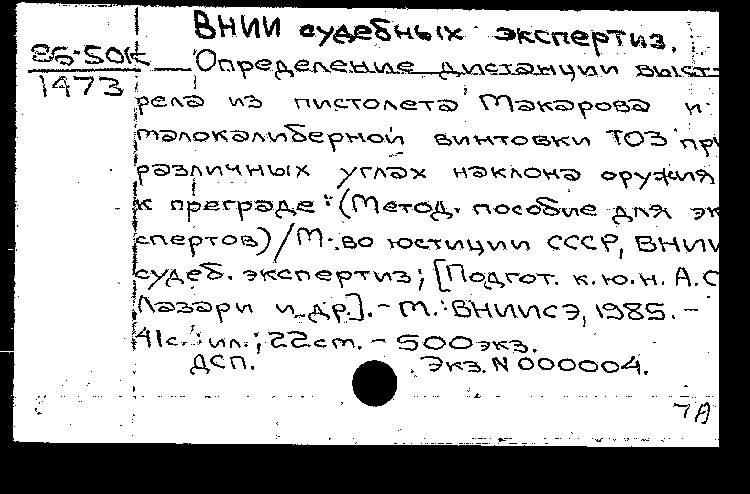 ВНИИ судебных экспертиз.
86-50К
1473
Определение дистанции выст-
рела из пистолета Макарова и
малокалиберной винтовки ТОЗ при
различных углах наклона оружия
к преграде: (Метод. пособие для эк
спертов) / М-во юстиции СССР, ВНИИ
судеб. экспертиз; [Подгот. к.ю.н. А.С
Лазари и др.]. - М.: ВНИИСЭ, 1985. -
41с.: ил.; 22см. - 500экз.
ДСП. Экз. N 000004.
7А